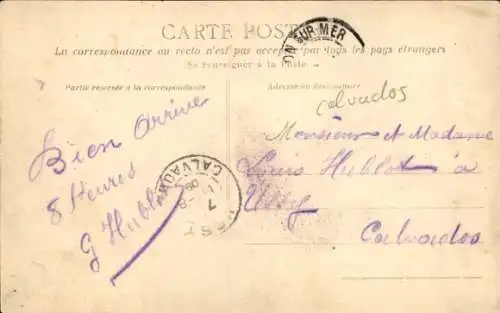 CARTE POSTALE
La correspondance au recto n'est pas acceptée par tous les pays étrangers
(Se renseigner à la Poste)
Partie réservée à la correspondance
Adresse du destinataire
SUR-MER
Calvados
Bien arrivé
8 heures
G Hublot
CALVADOS
7
08
Monsieur et Madame
Louis Hublot à
Ussy
Calvados